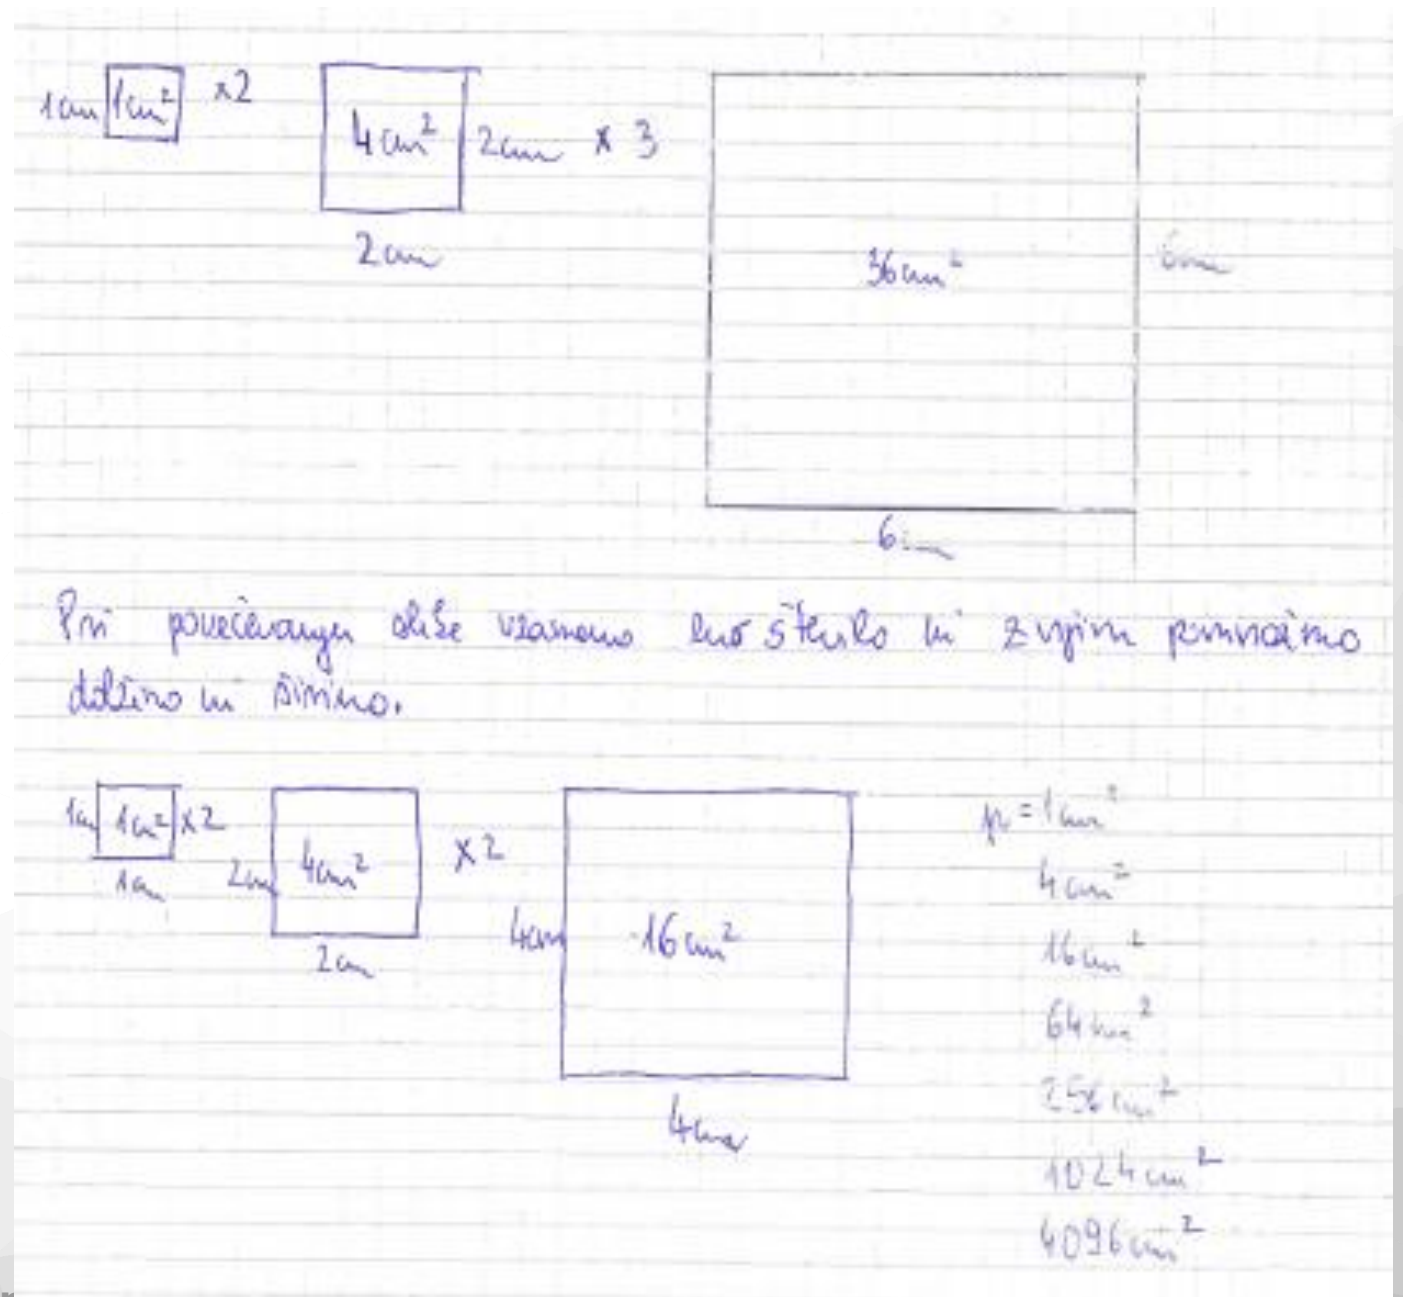 1cm 1cm² x2 4cm² 2cm x 3
2cm
36cm² 6cm
6cm
Pri povečevanju slike vzamemo eno število in z njim pomnožimo
dolžino in širino.
1cm 1cm² x2 2cm 4cm² x2 4cm 16cm²
1cm
2cm
4cm
p = 1cm²
4cm²
16cm²
64cm²
256cm²
1024cm²
4096cm²